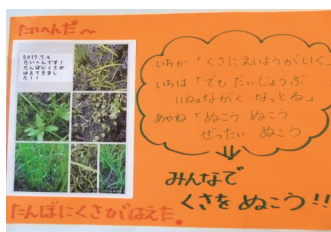 たいへんだ～
2017.7.6
たいへんです!
たんぼにくさが
はえてきまし
た!!
いちか「くさにえいようがいく。
いちは「でも だいじょうぶ
いねながく なっとる」
あやね「ぬこう ぬこう
ぜったい ぬこう
みんなで
くさを ぬこう!!
たんぼにくさがはえた。